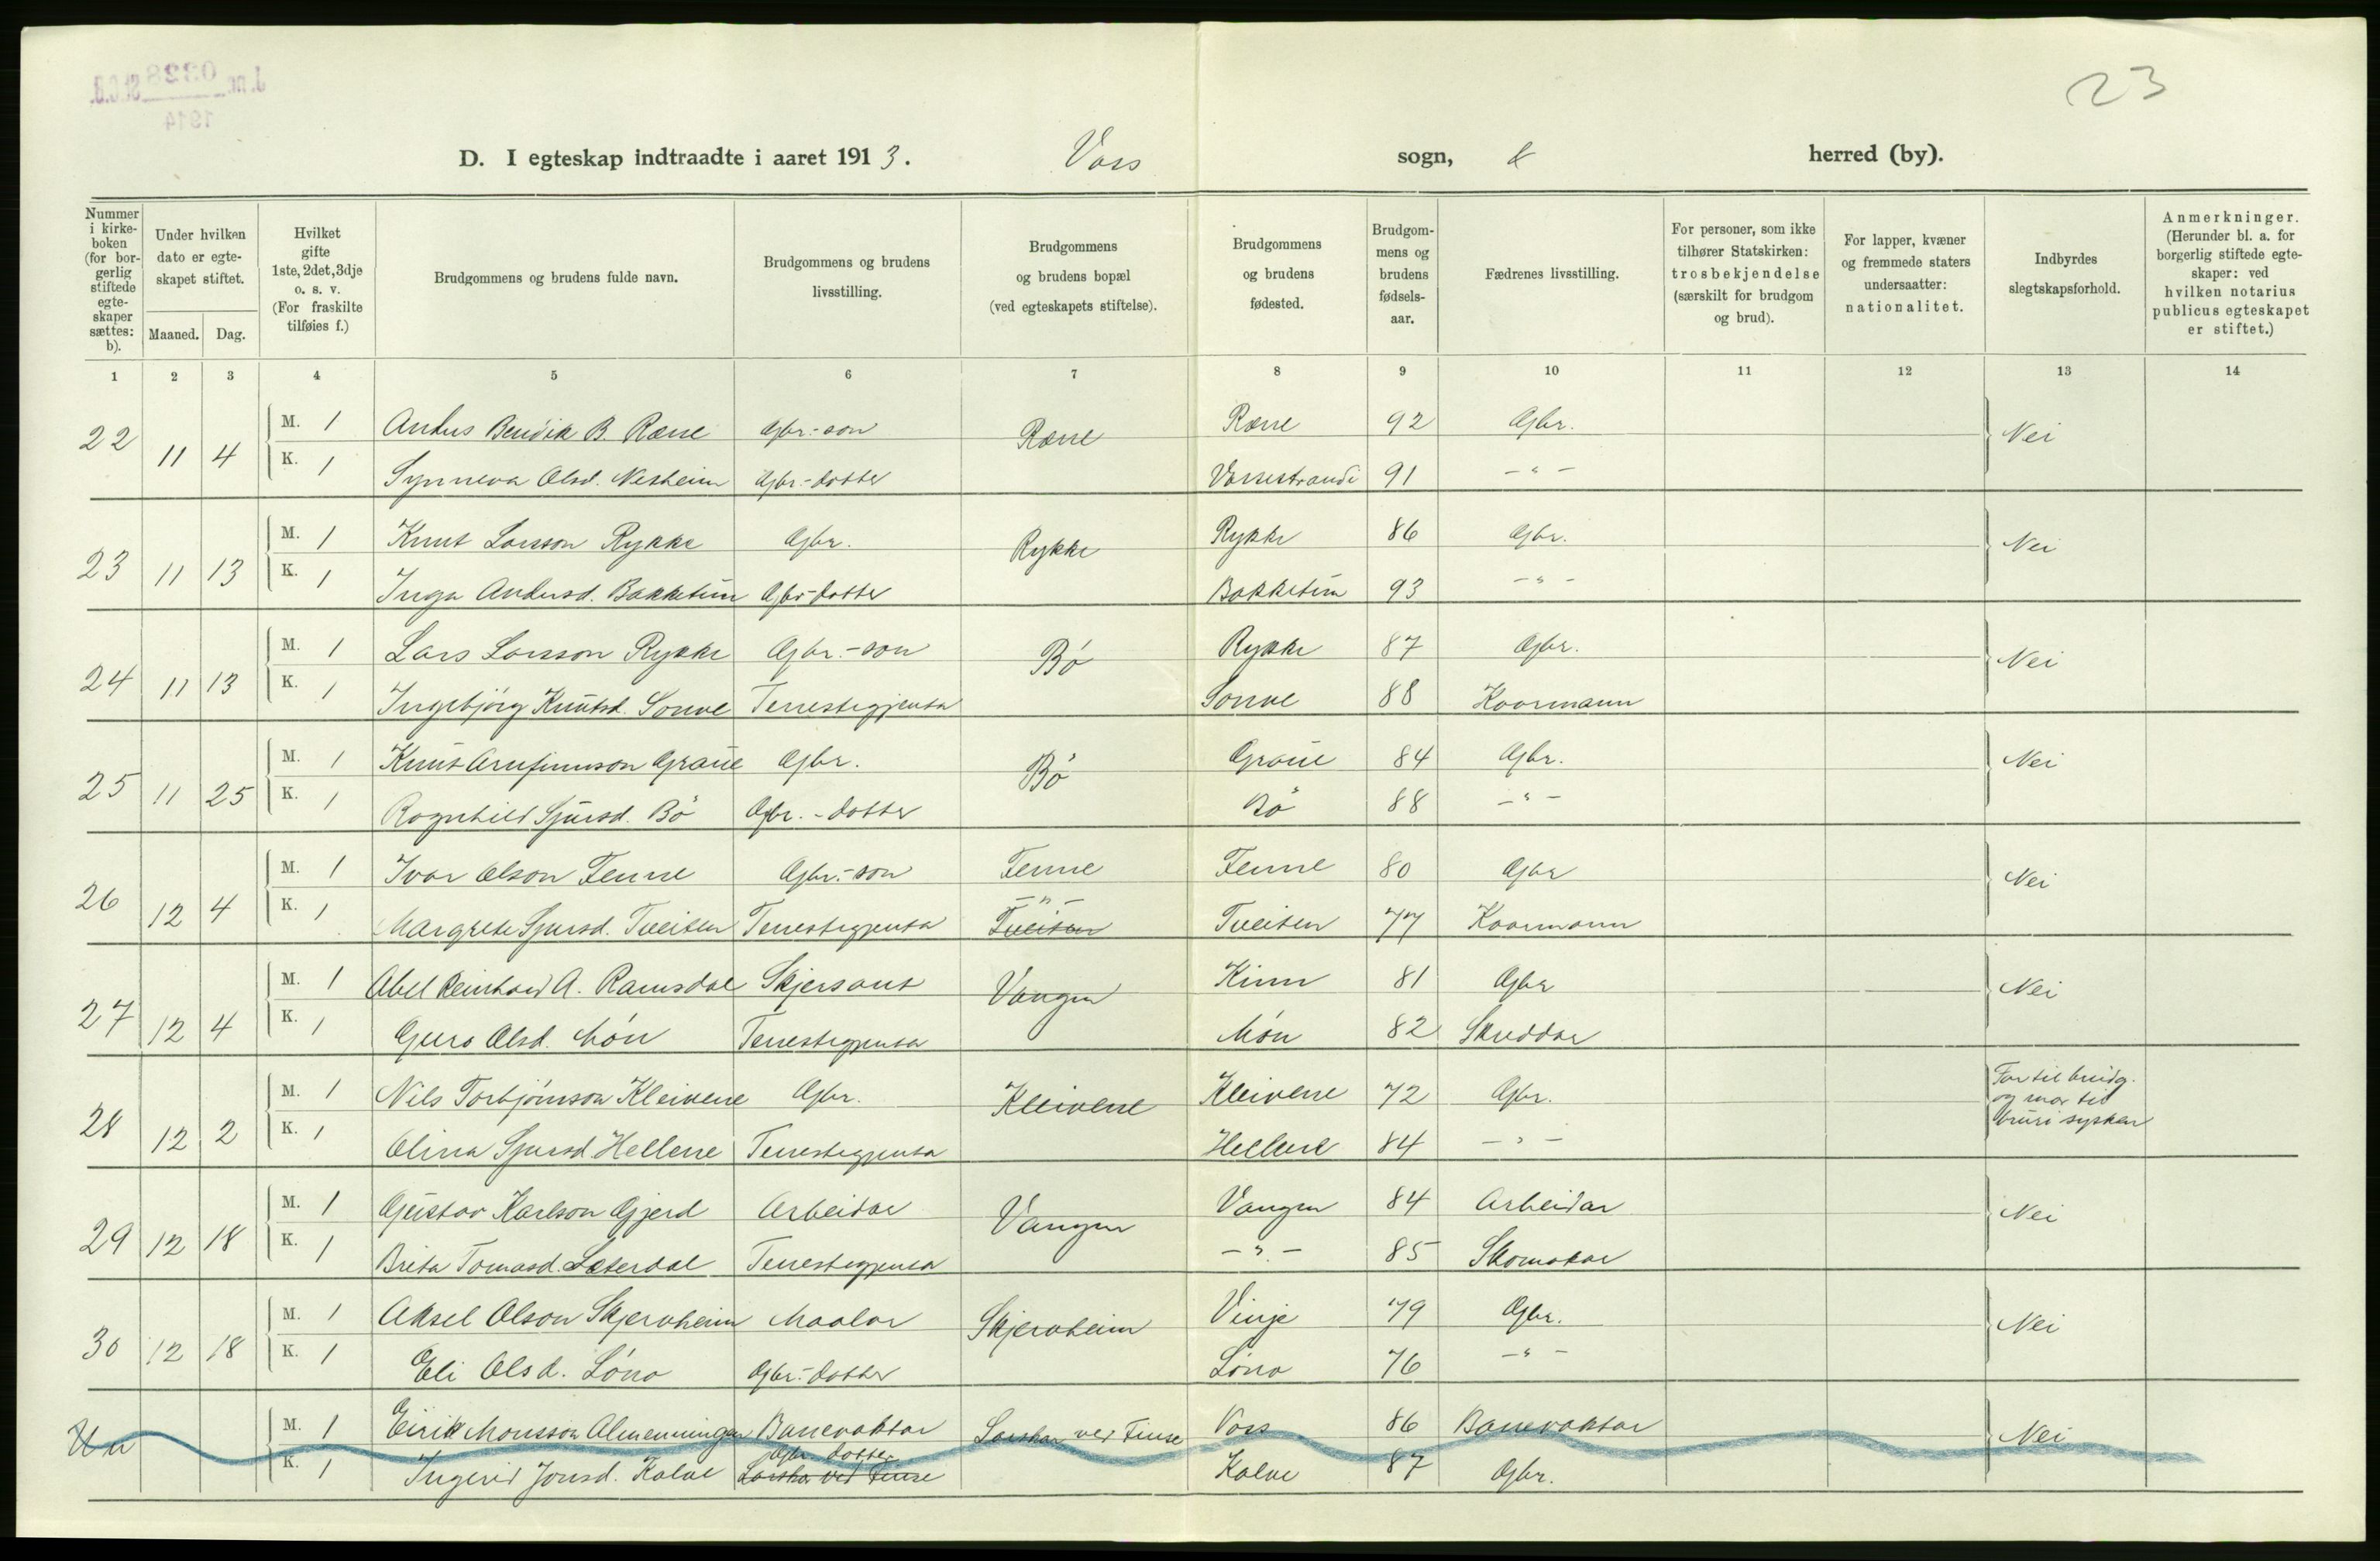 J. nr. 0328 St.C.B.
1914
23
D. I egteskap indtraadte i aaret 1913. Voss sogn, & herred (by).
Nummer i kirkeboken (for borgerlig stiftede egteskaper sættes: b).
Under hvilken dato er egteskapet stiftet.
Maaned. Dag.
Hvilket gifte 1ste, 2det, 3dje o. s. v. (For fraskilte tilføies f.)
Brudgommens og brudens fulde navn.
Brudgommens og brudens livsstilling.
Brudgommens og brudens bopæl (ved egteskapets stiftelse).
Brudgommens og brudens fødested.
Brudgommens og brudens fødselsaar.
Fædrenes livsstilling.
For personer, som ikke tilhører Statskirken: trosbekjendelse (særskilt for brudgom og brud).
For lapper, kvæner og fremmede staters undersaatter: nationalitet.
Indbyrdes slegtskapsforhold.
Anmerkninger. (Herunder bl. a. for borgerlig stiftede egteskaper: ved hvilken notarius publicus egteskapet er stiftet.)
1 2 3 4 5 6 7 8 9 10 11 12 13 14
22 11 4 M. 1 Anders Bendik B. Rørne Gbr.-son Rørne Rørne 92 Gbr. Nei
K. 1 Synneva Olsd. Nesheim Gbr.-dotter Vossestrandi 91 -"-
23 11 13 M. 1 Knut Larsson Rykke Gbr. Rykke Rykke 86 Gbr. Nei
K. 1 Inga Andersd. Bakketun Gbr-dotter Bakketun 93 -"-
24 11 13 M. 1 Lars Larsson Rykke Gbr.-son Bø Rykke 87 Gbr. Nei
K. 1 Ingebjørg Knutsd. Sonve Tenestegjenta Sonve 88 Koormann
25 11 25 M. 1 Knut Arnfinnson Graue Gbr. Bø Graue 84 Gbr. Nei
K. 1 Ragnhild Sjursd. Bø Gbr.-dotter Bø 88 -"-
26 12 4 M. 1 Ivar Olson Fenne Gbr.-son Fenne Fenne 80 Gbr Nei
K. 1 Margrete Sjursd. Tveiten Tenestegjenta -"- Tveiten Tveiten 77 Koormann
27 12 4 M. 1 Abel Reinhard A. Ramsdal Skjersant Vangen Kinn 81 Gbr Nei
K. 1 Guro Olsd. Møn Tenestegjenta Møn 82 Skreddar
28 12 2 M. 1 Nils Torbjørnson Kleivene Gbr. Kleivene Kleivene 72 Gbr. Far til brudg. og mor til bruri sysken
K. 1 Olina Sjursd. Hellene Tenestegjenta Hellene 84 -"-
29 12 18 M. 1 Gustav Karlson Gjerd Arbeidar Vangen Vangen 84 Arbeidar Nei
K. 1 Brita Tomasd. Sæterdal Tenestegjenta -"- 85 Skomakar
30 12 18 M. 1 Aksel Olson Skjerveheim Maalar Skjerveheim Vinje 79 Gbr. Nei
K. 1 Eli Olsd. Løno Gbr.-dotter Løno 76 -"-
M. 1 Eirik Monsson Almenningen Banevaktar Larshar ved Finse Voss 86 Banevaktar Nei
K. 1 Ingerid Jonsd. Kalve Gbr. dotter Larshar ved Finse Kalve 87 Gbr.